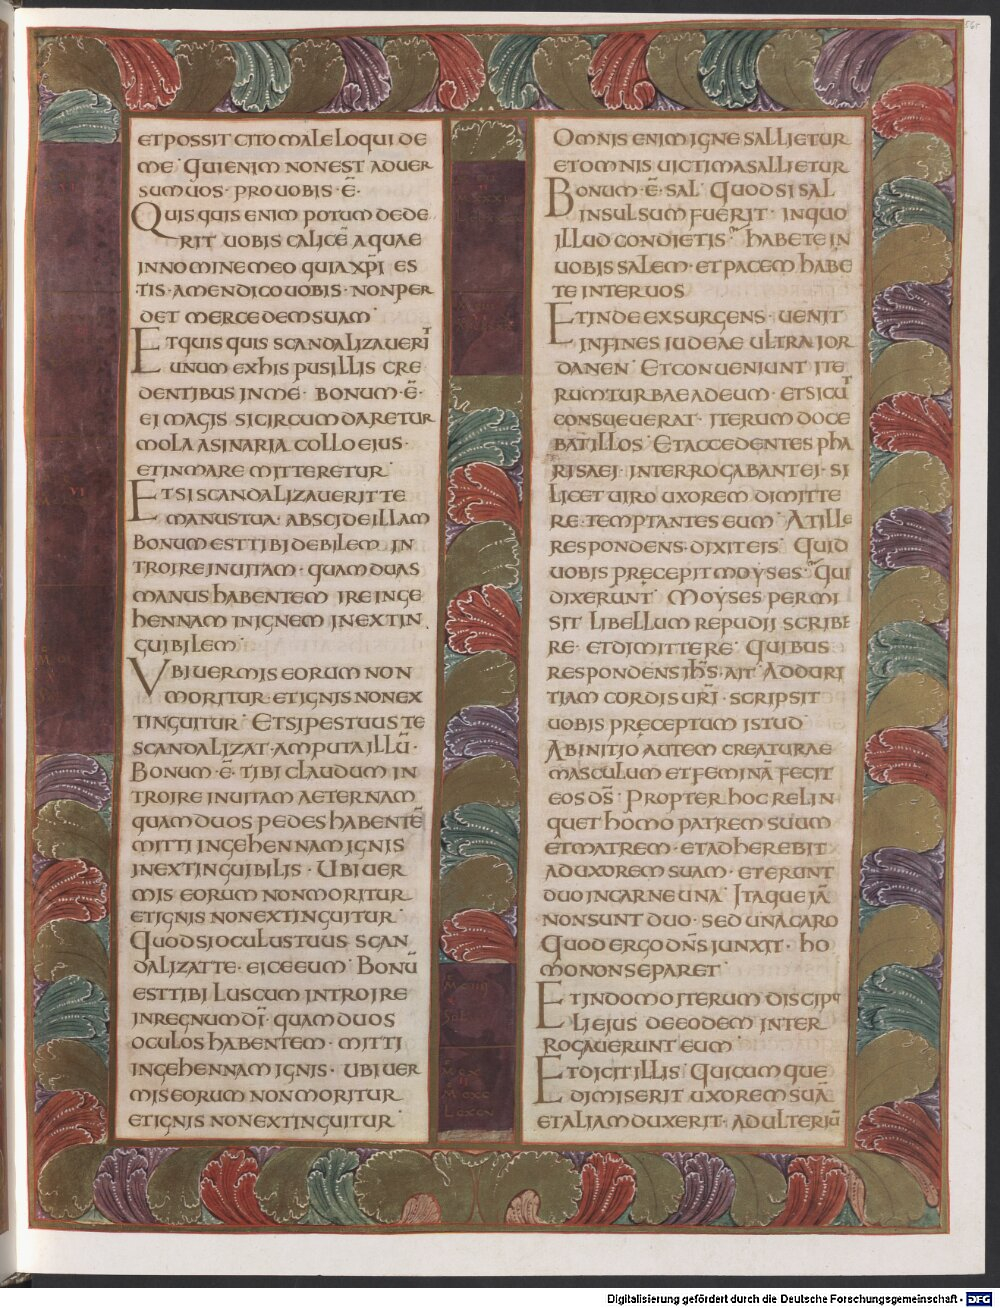 ET POSSIT CITO MALE LOQUI DE
ME · QUI ENIM NON EST ADVER
SUM UOS · PRO UOBIS · Ē ·
QUIS QUIS ENIM POTUM DEDE
RIT UOBIS CALICĒ AQUAE
IN NOMINE MEO QUIA XP̄I ES
TIS · AMEN DICO UOBIS · NON PER
DET MERCEDEM SUAM ·
ET QUIS QUIS SCANDALIZAUERIT
UNUM EX HIS PUSILLIS CRE
DENTIBUS IN ME · BONUM · Ē ·
EI MAGIS SI CIRCUMDARETUR
MOLA ASINARIA COLLO EIUS ·
ET IN MARE MITTERETUR ·
ET SI SCANDALIZAUERIT TE
MANUS TUA · ABSCIDE ILLAM
BONUM EST TIBI DEBILEM IN
TROIRE IN UITAM · QUAM DUAS
MANUS HABENTEM IRE IN GE
HENNAM IN IGNEM INEXTIN
GUIBILEM ·
VBI UERMIS EORUM NON
MORITUR · ET IGNIS NON EX
TINGUITUR · ET SI PES TUUS TE
SCANDALIZAT · AMPUTA ILLŪ ·
BONUM · Ē · TIBI CLAUDUM IN
TROIRE IN UITAM AETERNAM
QUAM DUOS PEDES HABENTĒ
MITTI IN GEHENNAM IGNIS
INEXTINGUIBILIS · UBI UER
MIS EORUM NON MORITUR
ET IGNIS NON EXTINGUITUR ·
QUOD SI OCULUS TUUS SCAN
DALIZAT TE · EICE EUM · BONŪ
EST TIBI LUSCUM INTROIRE
IN REGNUM DĪ · QUAM DUOS
OCULOS HABENTEM · MITTI
IN GEHENNAM IGNIS · UBI UER
MIS EORUM NON MORITUR
ET IGNIS NON EXTINGUITUR ·
OMNIS ENIM IGNE SALLIETUR
ET OMNIS UICTIMA SALLIETUR
BONUM · Ē · SAL · QUOD SI SAL
INSULSUM FUERIT · IN QUO
ILLUD CONDIETIS · HABETE IN
UOBIS SALEM · ET PACEM HABE
TE INTER UOS
ET INDE EXSURGENS · UENIT
IN FINES IUDEAE ULTRA IOR
DANEN · ET CONUENIUNT ITE
RUM TURBAE AD EUM · ET SICUT
CONSUEUERAT · ITERUM DOCE
BAT ILLOS · ET ACCEDENTES PHA
RISAEI · INTERROGABANT EI · SI
LICET UIRO UXOREM DIMITTE
RE · TEMPTANTES EUM · AT ILLE
RESPONDENS · DIXIT EIS · QUID
UOBIS PRĘCEPIT MOYSES · QUI
DIXERUNT · MOYSES PERMI
SIT LIBELLUM REPUDII SCRIBE
RE · ET DIMITTERE · QUIBUS
RESPONDENS IH̄S · AIT · AD DURI
TIAM CORDIS UR̄I · SCRIPSIT
UOBIS PRĘCEPTUM ISTUD ·
AB INITIO AUTEM CREATURAE
MASCULUM ET FEMINĀ FECIT
EOS D̄S · PROPTER HOC RELIN
QUET HOMO PATREM SUUM
ET MATREM · ET ADHEREBIT
AD UXOREM SUAM · ET ERUNT
DUO IN CARNE UNA · ITAQUE IĀ
NON SUNT DUO · SED UNA CARO
QUOD ERGO D̄NS IUNXIT · HO
MO NON SEPARET ·
ET IN DOMO ITERUM DISCIPU
LI EIUS DE EODEM INTER
ROGAUERUNT EUM ·
ET DICIT ILLIS · QUICUMQUE
DIMISERIT UXOREM SUĀ
ET ALIAM DUXERIT · ADULTERIŪ
VI
Digitalisierung gefördert durch die Deutsche Forschungsgemeinschaft - DFG